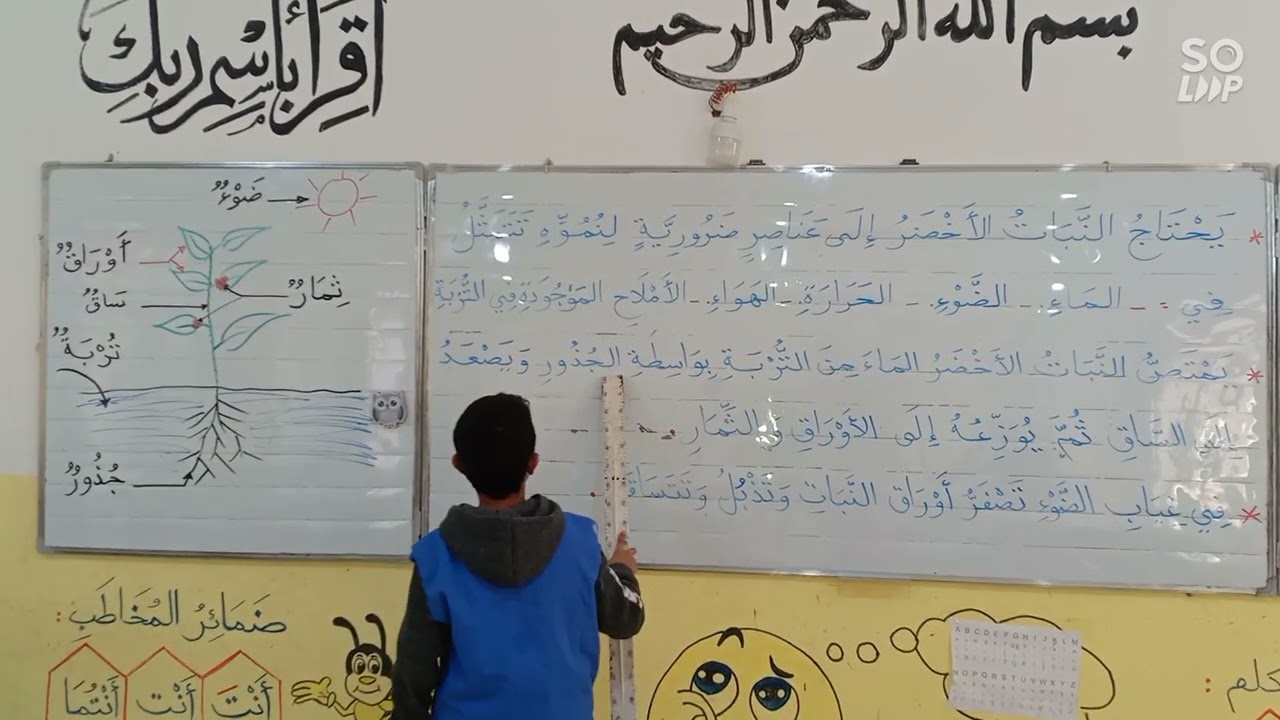 بسم الله الرحمن الرحيم
اقرأ باسم ربك
SO
LOOP
يَحْتَاجُ النَّبَاتُ الأَخْضَرُ إِلَى عَنَاصِرٍ ضَرُورِيَّةٍ لِنُمُوِّهِ تَتَمَثَّلُ
فِي : - المَاءِ. - الضَّوْءِ. - الحَرَارَةِ. - الهَوَاءِ. - الأَمْلَاحِ المَوْجُودَةِ فِي التُّرْبَةِ
* يَمْتَصُّ النَّبَاتُ الأَخْضَرُ المَاءَ مِنَ التُّرْبَةِ بِوَاسِطَةِ الجُذُورِ وَيَصْعَدُ
إِلَى السَّاقِ ثُمَّ يُوَزِّعُهُ إِلَى الأَوْرَاقِ وَ الثِّمَارِ.
* فِي غِيَابِ الضَّوْءِ تَصْفَرُّ أَوْرَاق النَّبَاتِ وَتَذْبُلُ وَتَتَسَاقَ
ضَوْءٌ
أَوْرَاقٌ
ثِمَارٌ
سَاقٌ
تُرْبَةٌ
جُذُورٌ
ضَمَائِرُ المُخَاطَبِ :
أَنْتَ أَنْتِ أَنْتُمَا
ABCDEFGHIJKLM
NOPQRSTUVWXYZ